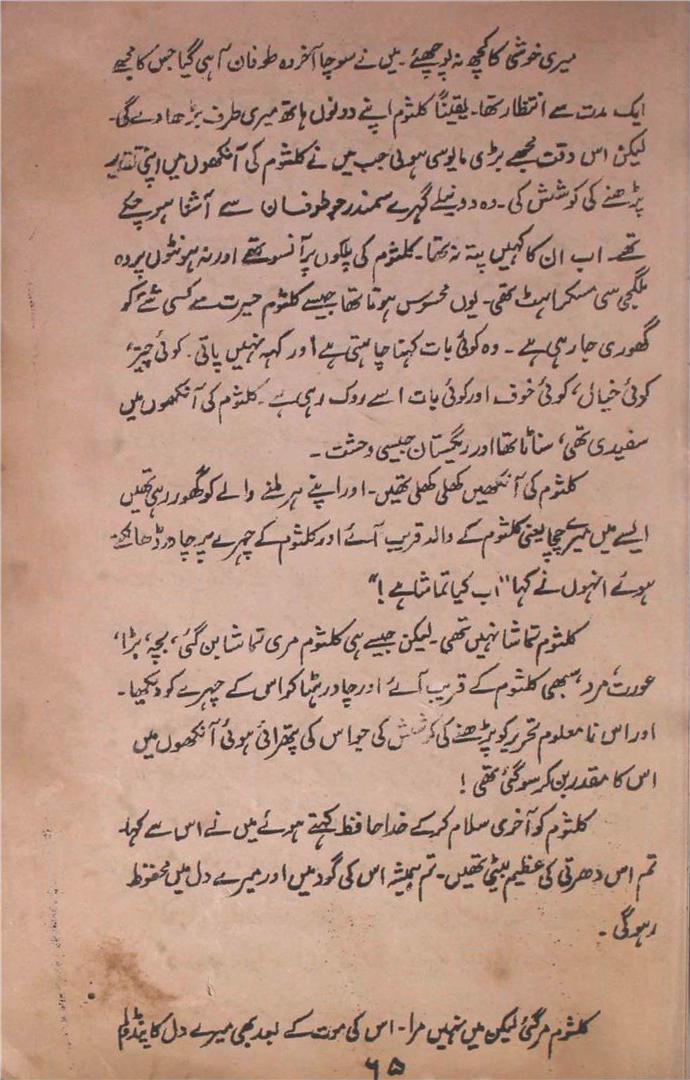 میری خوشی کا کچھ نہ پوچھئے۔ میں نے سوچا آخر وہ طوفان آ ہی گیا جس کا مجھے
ایک مدت سے انتظار تھا۔ یقیناً کلثوم اپنے دونوں ہاتھ میری طرف بڑھا دے گی۔
لیکن اس وقت مجھے بڑی مایوسی ہوئی جب میں نے کلثوم کی آنکھوں میں اپنی تقدیر
پڑھنے کی کوشش کی۔ وہ دو نیلے گہرے سمندر جو طوفان سے آشنا ہو چکے
تھے۔ اب ان کا کہیں پتہ نہ تھا۔ کلثوم کی پلکوں پر آنسو تھے اور نہ ہونٹوں پر وہ
ملگجی سی مسکراہٹ تھی۔ یوں محسوس ہوتا تھا جیسے کلثوم حیرت سے کسی شئے کو
گھوری جا رہی ہے۔ وہ کوئی بات کہنا چاہتی ہے اور کہہ نہیں پاتی۔ کوئی چیز،
کوئی خیال، کوئی خوف اور کوئی بات اسے روک رہی ہے۔ کلثوم کی آنکھوں میں
سفیدی تھی، سناٹا تھا اور ریگستان جیسی وحشت۔
کلثوم کی آنکھیں کھلی کھلی تھیں۔ اور اپنے ہر ملنے والے کو گھور رہی تھیں
ایسے میں میرے چچا یعنی کلثوم کے والد قریب آئے اور کلثوم کے چہرے پر چادر ڈھانکتے
ہوئے انہوں نے کہا "اب کیا تماشا ہے!"
کلثوم تماشا نہیں تھی۔ لیکن جیسے ہی کلثوم مری تماشا بن گئی، بچہ، بڑا،
عورت، مرد، سبھی کلثوم کے قریب آئے اور چادر ہٹا کر اس کے چہرے کو دیکھا۔
اور اس نامعلوم تحریر کو پڑھنے کی کوشش کی جو اس کی پتھرائی ہوئی آنکھوں میں
اس کا مقدر بن کر سو گئی تھی!
کلثوم کو آخری سلام کر کے خدا حافظ کہتے ہوئے میں نے اس سے کہا۔
تم اس دھرتی کی عظیم بیٹی تھیں۔ تم ہمیشہ اس کی گود میں اور میرے دل میں محفوظ
رہو گی۔
کلثوم مر گئی لیکن میں نہیں مرا۔ اس کی موت کے بعد بھی میرے دل کا پنڈولم
۶۵